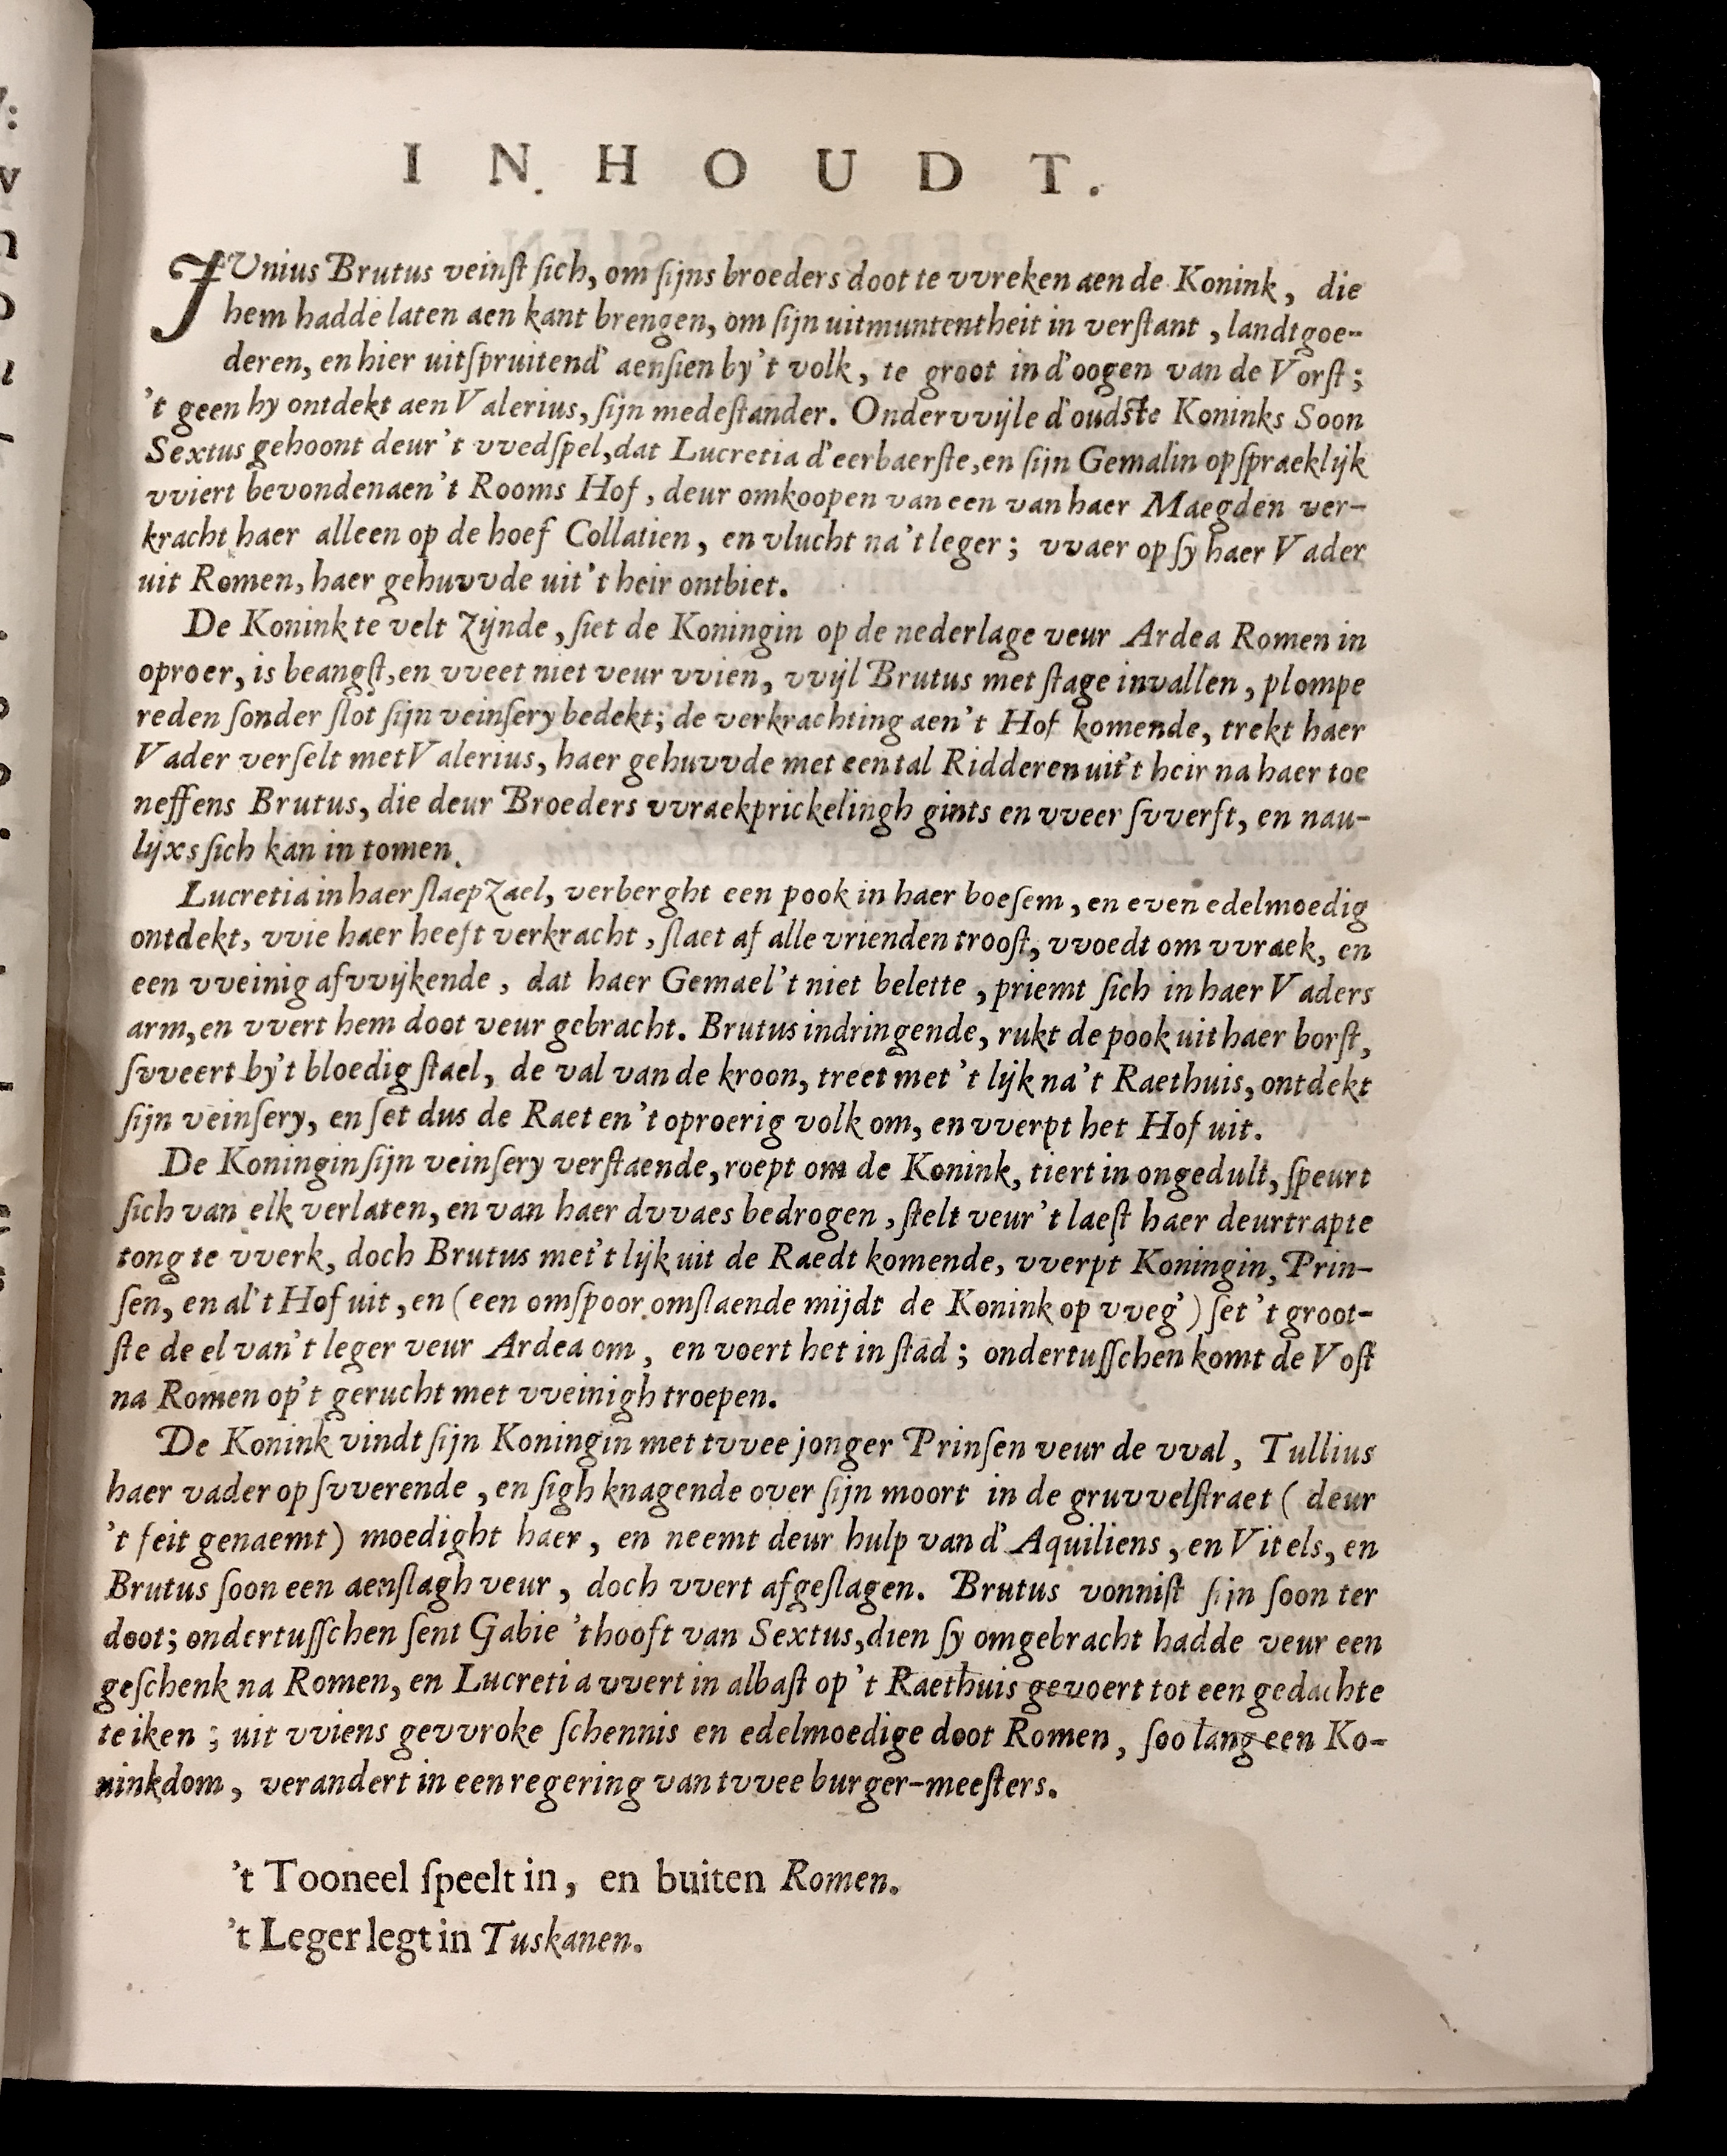 INHOUDT.
JUnius Brutus veinſt ſich, om ſijns broeders doot te vvreken aen de Konink, die
hem hadde laten aen kant brengen, om ſijn uitmuntentheit in verſtant, landtgoe-
deren, en hier uitſpruitend' aenſien by 't volk, te groot in d'oogen van de Vorſt;
't geen hy ontdekt aen Valerius, ſijn medeſtander. Ondervvijle d'oudſte Koninks Soon
Sextus gehoont deur 't vvedſpel, dat Lucretia d'eerbaerſte, en ſijn Gemalin opſpraeklijk
vviert bevonden aen 't Rooms Hof, deur omkoopen van een van haer Maegden ver-
kracht haer alleen op de hoef Collatien, en vlucht na 't leger; vvaer op ſy haer Vader
uit Romen, haer gehuvvde uit 't heir ontbiet.
De Konink te velt zijnde, ſiet de Koningin op de nederlage veur Ardea Romen in
oproer, is beangſt, en vveet niet veur vvien, vvijl Brutus met ſtage invallen, plompe
reden ſonder ſlot ſijn veinſery bedekt; de verkrachting aen 't Hof komende, trekt haer
Vader verſelt met Valerius, haer gehuvvde met een tal Ridderen uit't heir na haer toe
neffens Brutus, die deur Broeders vvraekprickelingh gints en vveer ſvverft, en nau-
lijxs ſich kan in tomen.
Lucretia in haer ſlaepzael, verberght een pook in haer boeſem, en even edelmoedig
ontdekt, vvie haer heeft verkracht, ſlaet af alle vrienden trooſt, vvoedt om vvraek, en
een vveinig afvvijkende, dat haer Gemael 't niet belette, priemt ſich in haer Vaders
arm, en vvert hem doot veur gebracht. Brutus indringende, rukt de pook uit haer borſt,
ſvveert by't bloedig ſtael, de val van de kroon, treet met 't lijk na 't Raethuis, ontdekt
ſijn veinſery, en ſet dus de Raet en 't oproerig volk om, en vverpt het Hof uit.
De Koningin ſijn veinſery verſtaende, roept om de Konink, tiert in ongedult, ſpeurt
ſich van elk verlaten, en van haer dvvaes bedrogen, ſtelt veur 't laeſt haer deurtrapte
tong te vverk, doch Brutus met't lijk uit de Raedt komende, vverpt Koningin, Prin-
ſen, en al't Hof uit, en (een omſpoor omſlaende mijdt de Konink op vveg') ſet 't groot-
ſte deel van 't leger veur Ardea om, en voert het in ſtad; ondertuſſchen komt de Voſt
na Romen op't gerucht met vveinigh troepen.
De Konink vindt ſijn Koningin met tvvee jonger Prinſen veur de vval, Tullius
haer vader op ſvverende, en ſigh knagende over ſijn moort in de gruvvelſtraet (deur
't feit genaemt) moedight haer, en neemt deur hulp van d' Aquiliens, en Vitels, en
Brutus ſoon een aenſlagh veur, doch vvert afgeſlagen. Brutus vonniſt ſijn ſoon ter
doot; ondertuſſchen ſent Gabie 't hooft van Sextus, dien ſy omgebracht hadde veur een
geſchenk na Romen, en Lucretia vvert in albaſt op 't Raethuis gevoert tot een gedachte
teiken; uit vviens gevvroke ſchennis en edelmoedige doot Romen, ſoo lang een Ko-
ninkdom, verandert in een regering van tvvee burger-meeſters.
't Tooneel ſpeelt in, en buiten Romen.
't Leger legt in Tuskanen.